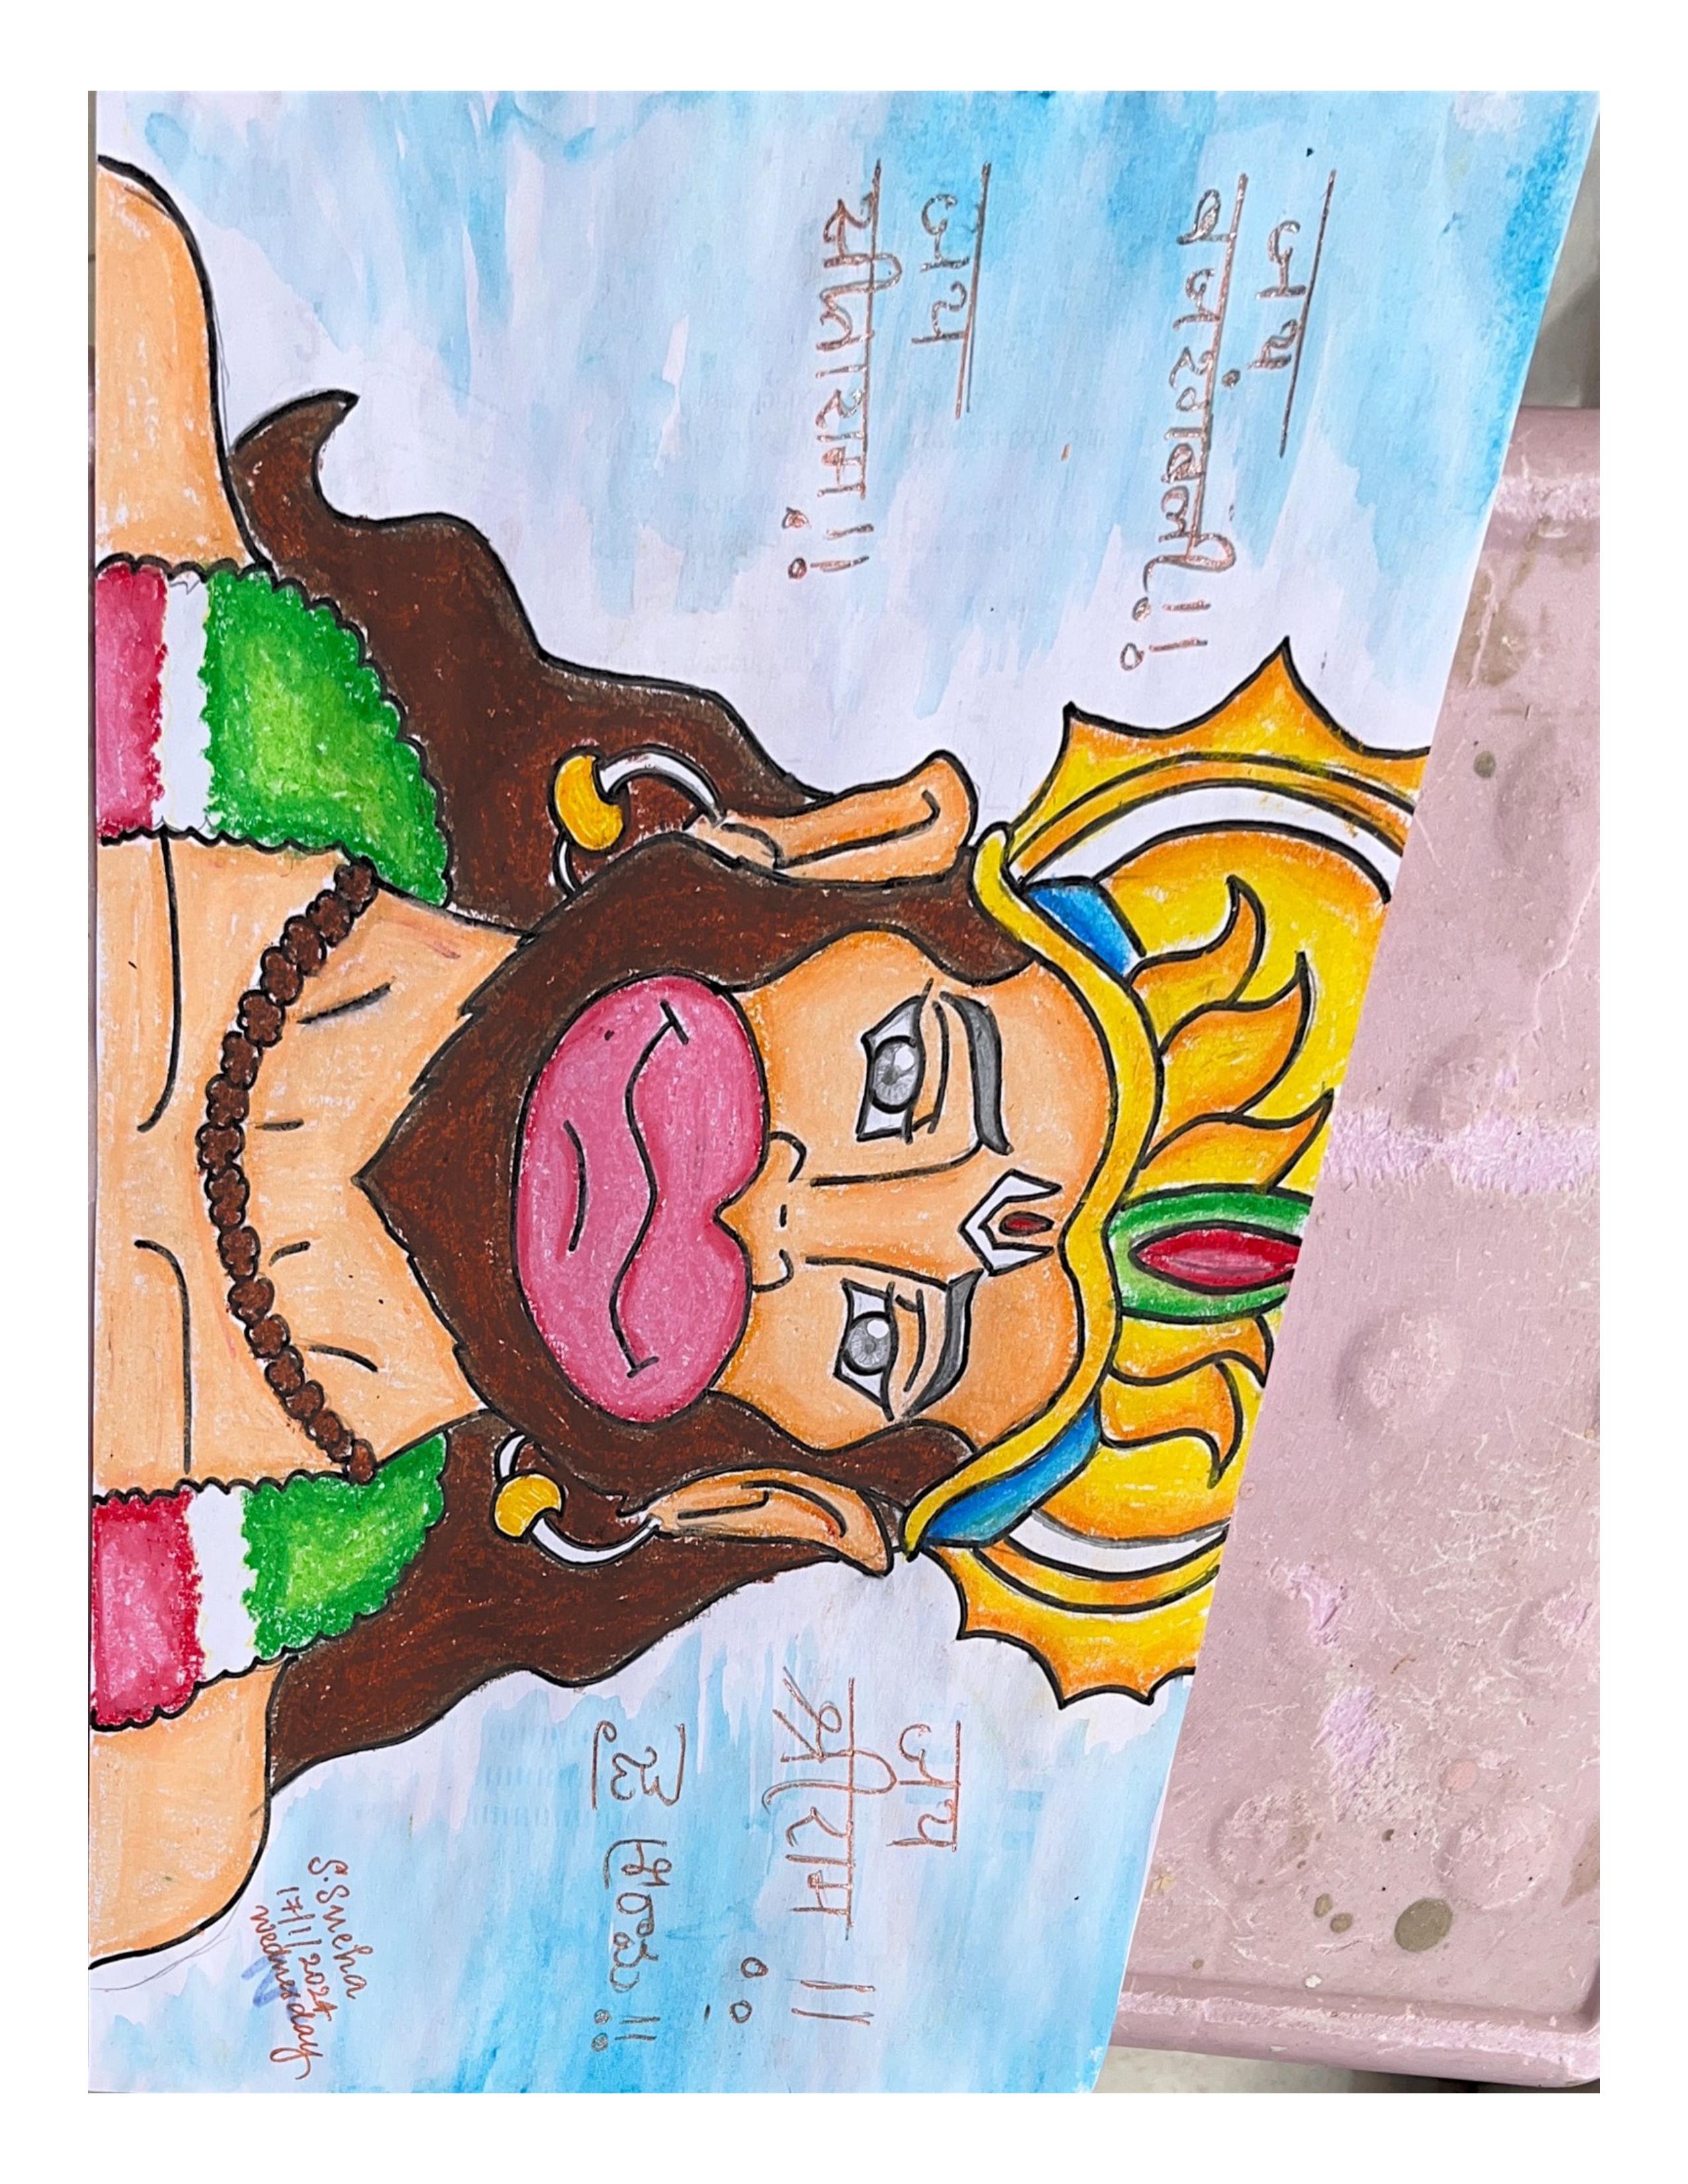 जय
बजरंगबली!!
जय
सीताराम!!
जय
श्रीराम !!
జై శ్రీరామ !!
S. Sneha
17/1/2024
Wednesday